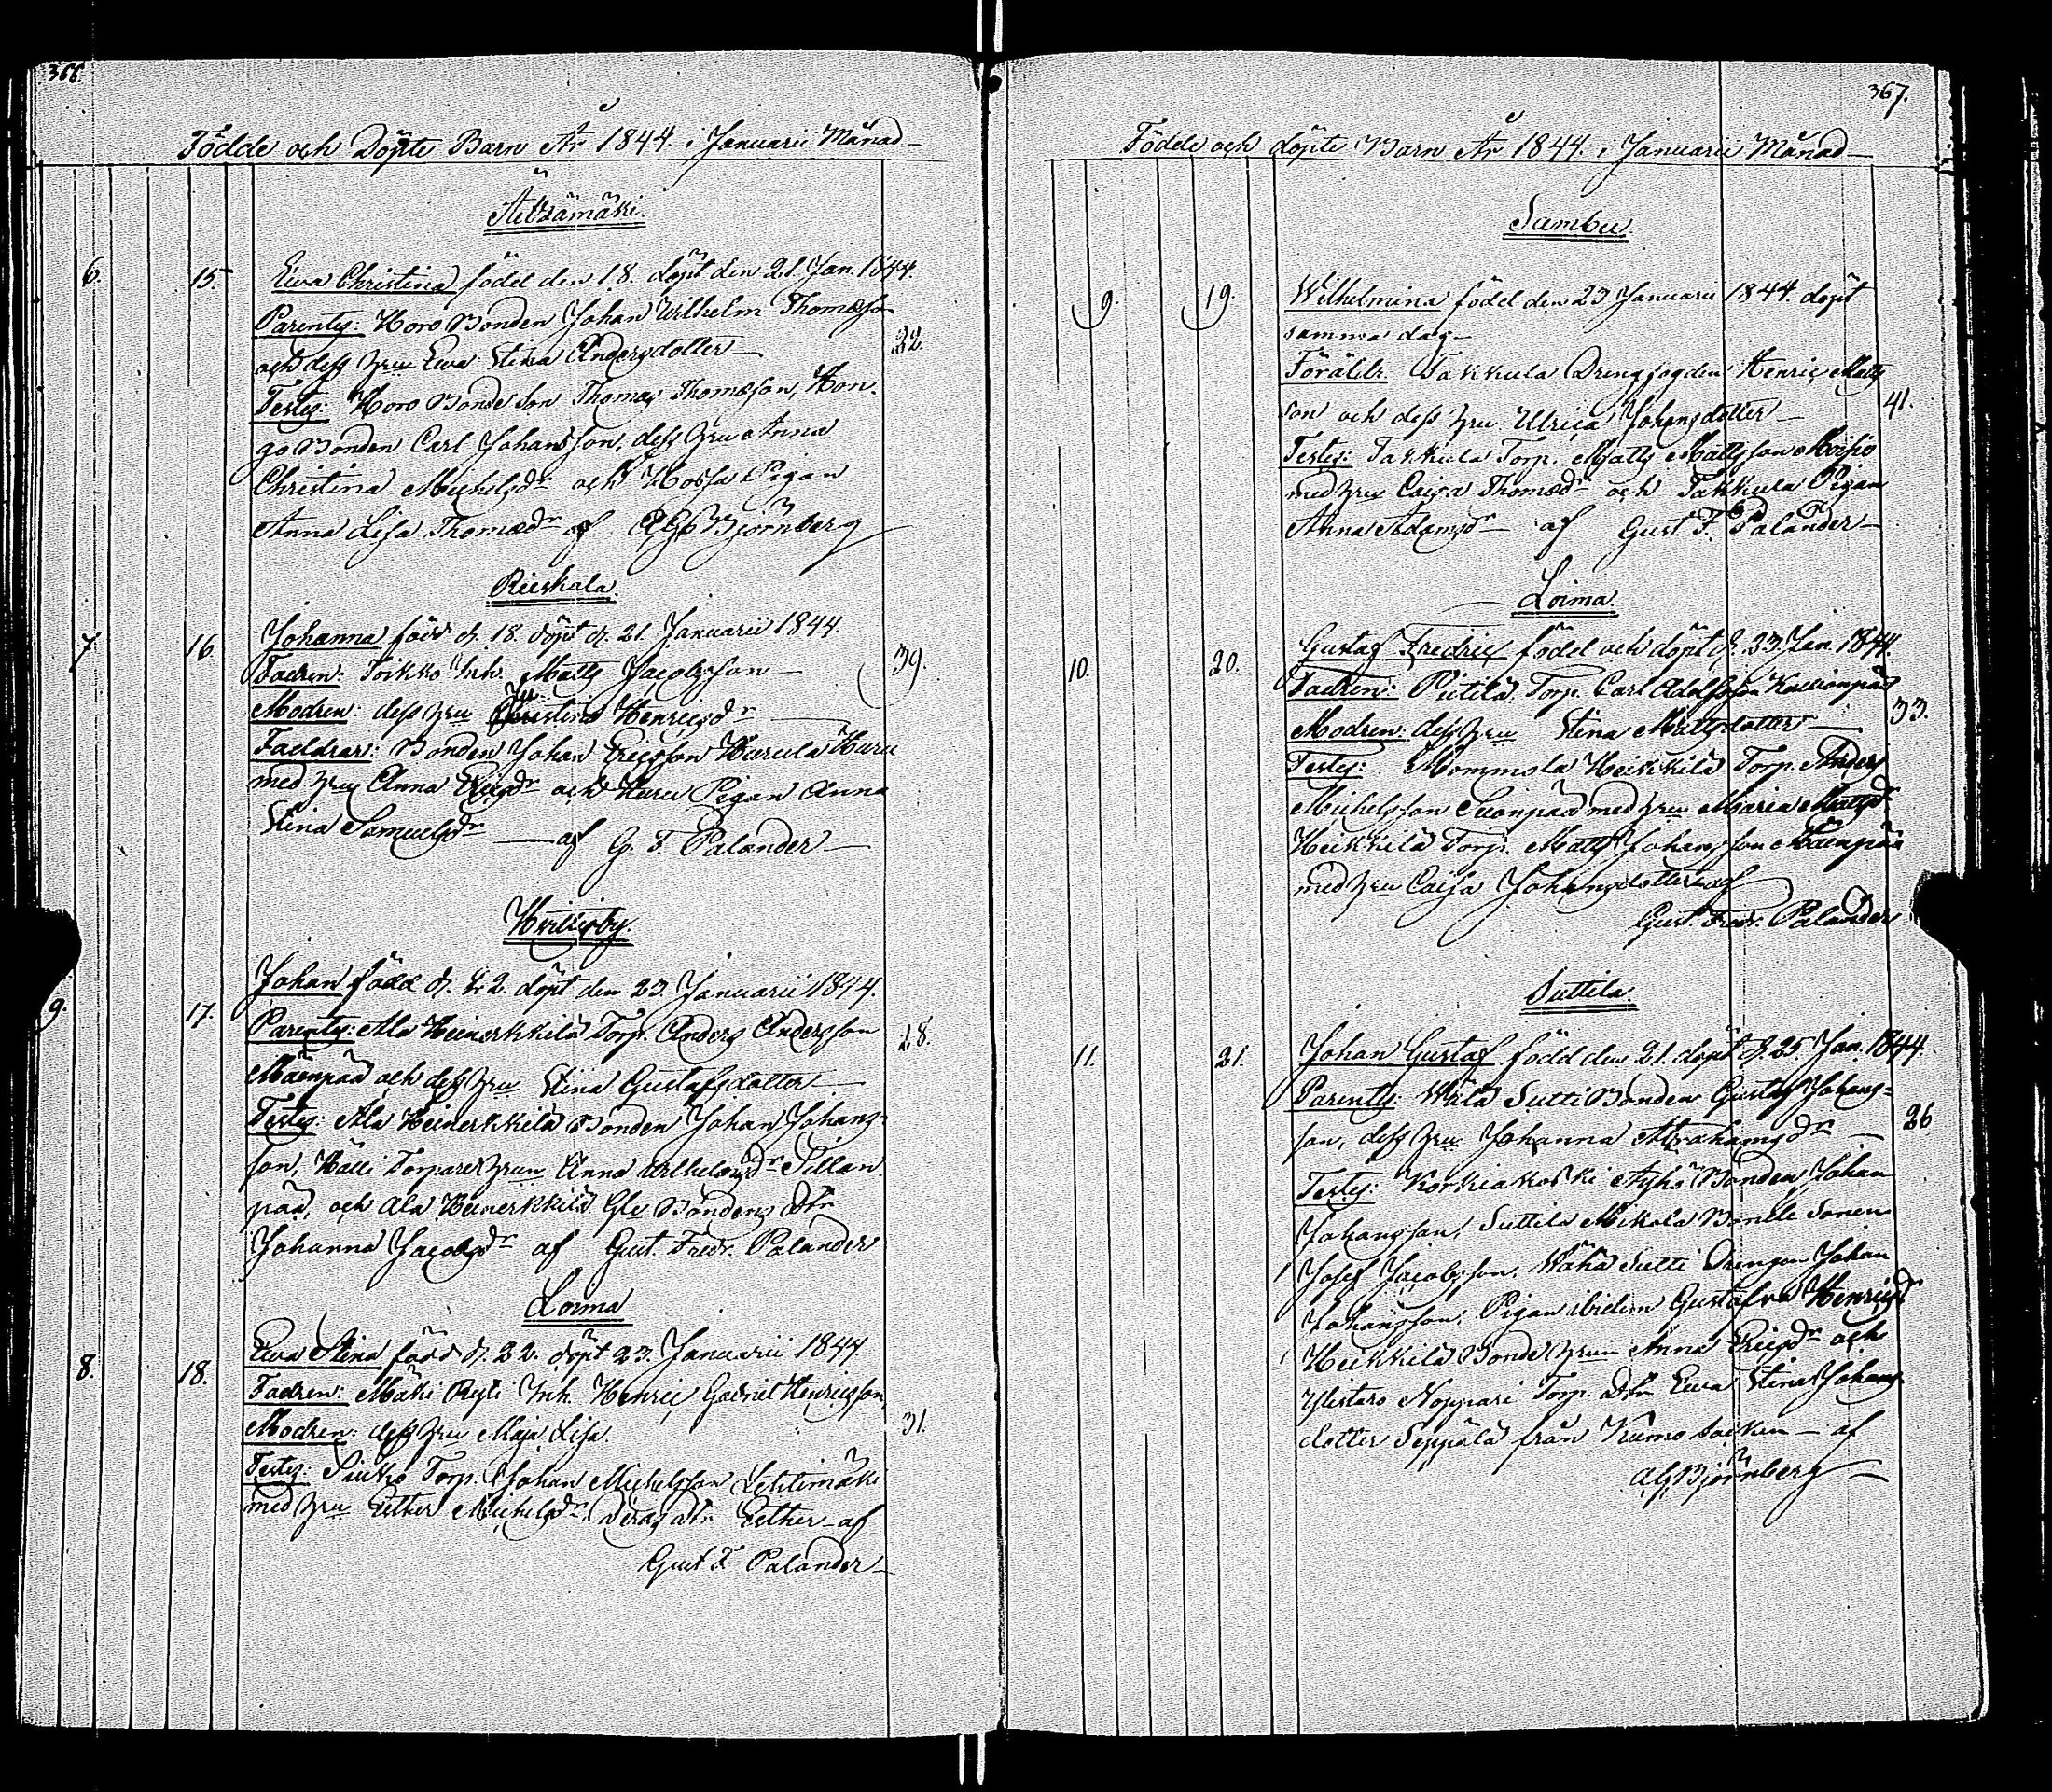 366.
Födde och Döpte Barn År 1844 i Januarii Månad
Äetsämäki
6. 15. Ewa Christina född den 18. döpt den 21. Jan. 1844.
Parentes: Horo Bonden Johan Wilhelm Thomasson
och dess hru Ewa Stina Andersdotter 22.
Testes: Horo Bonde son Thomas Thomasson, Hon-
go Bonden Carl Johansson, dess hru Anna
Christina Michelsdr och Pigan
Anna Lisa Thomasdr af Björnberg
Rieskala
7. 16. Johanna född d. 18. döpt d. 21. Januarii 1844.
Fadren: Toikko Inh. Matts Jacobsson 39.
Modren: dess hru Henricsdr
Faddrar: Bonden Johan Ericsson Hurula Huru
med hru Anna Ericsdr och Huru Pigan Anna
Stina Samuelsdr af G. F. Palander
Hvittisby.
9. 17. Johan född d. 22. döpt den 23. Januarii 1844.
Parentes: Ala Heinerkkilä Torp. Anders Andersson 28.
Mäenpää och dess hru Stina Gustafsdotter
Testes: Ala Heinerkkilä Bonden Johan Johans-
son, Hälli Torpare hrun Anna Wilhelmsdr Sillan
pää, och Ala Heinerkkilä Gle Bondens Dtr
Johanna Jacobsdr af Gust. Fredr. Palander
Loima
8. 18. Ewa Stina född d. 22. döpt 23. Januarii 1844.
Fadren: Mäki Rysti Inh. Henric Gabriel Henricsson
Modren: dess hru Maja Lisa. 31.
Testes: Torp. Johan Michelsson Lehtimäki
med hru Esther Michelsdr, deras dtr Esther af
Gust F Palander
367.
Födde och döpte Barn År 1844. i Januarii Månad
Sambu
9. 19. Wilhelmina född den 23 Januarii 1844. döpt
samma dag
Föräldr. Takkula Drengfogden Henric Matts
son och dess hru Ulrica Johansdotter 41.
Testes: Takkula Torp. Matts Mattsson Moisio
med hru Caisa Thomasdr och Takkula Pigan
Anna Adamsdr af Gust. F. Palander
Loima
10. 20. Gustaf Fredric född och döpt d. 23. Jan. 1844.
Fadren: Pietilä Torp. Carl Adolfsson
Modren: dess hru Stina Mattsdotter 33.
Testes: Mommola Heikkilä Torp. Anders
Michelsson Suonpää med hru Maria Mattsdr
Heikkilä Torp. Matts Johansson Mäenpää
med hru Caisa Johansdotter af
Gust. Fredr. Palander
Suttila
11. 21. Johan Gustaf född den 21. döpt d. 25. Jan. 1844.
Parentes: Wälä Sutti Bonden Gustaf Johans-
son, dess hru Johanna Abrahamsdr 26
Testes: Korkiakoski Äyhö Bonden Johan
Johansson, Suttila Mikola Bonde Sonen
Josef Jacobsson, Wähä Sutti Drengen Johan
Johansson, Pigan ibidem Gustafva Henricsdr
Heikkilä Bonde hrun Anna Ericsdr och
Ylistaro Noppari Torp. Dtr Ewa Stina Johans
dotter Seppälä från Kumo Socken af
Björnberg